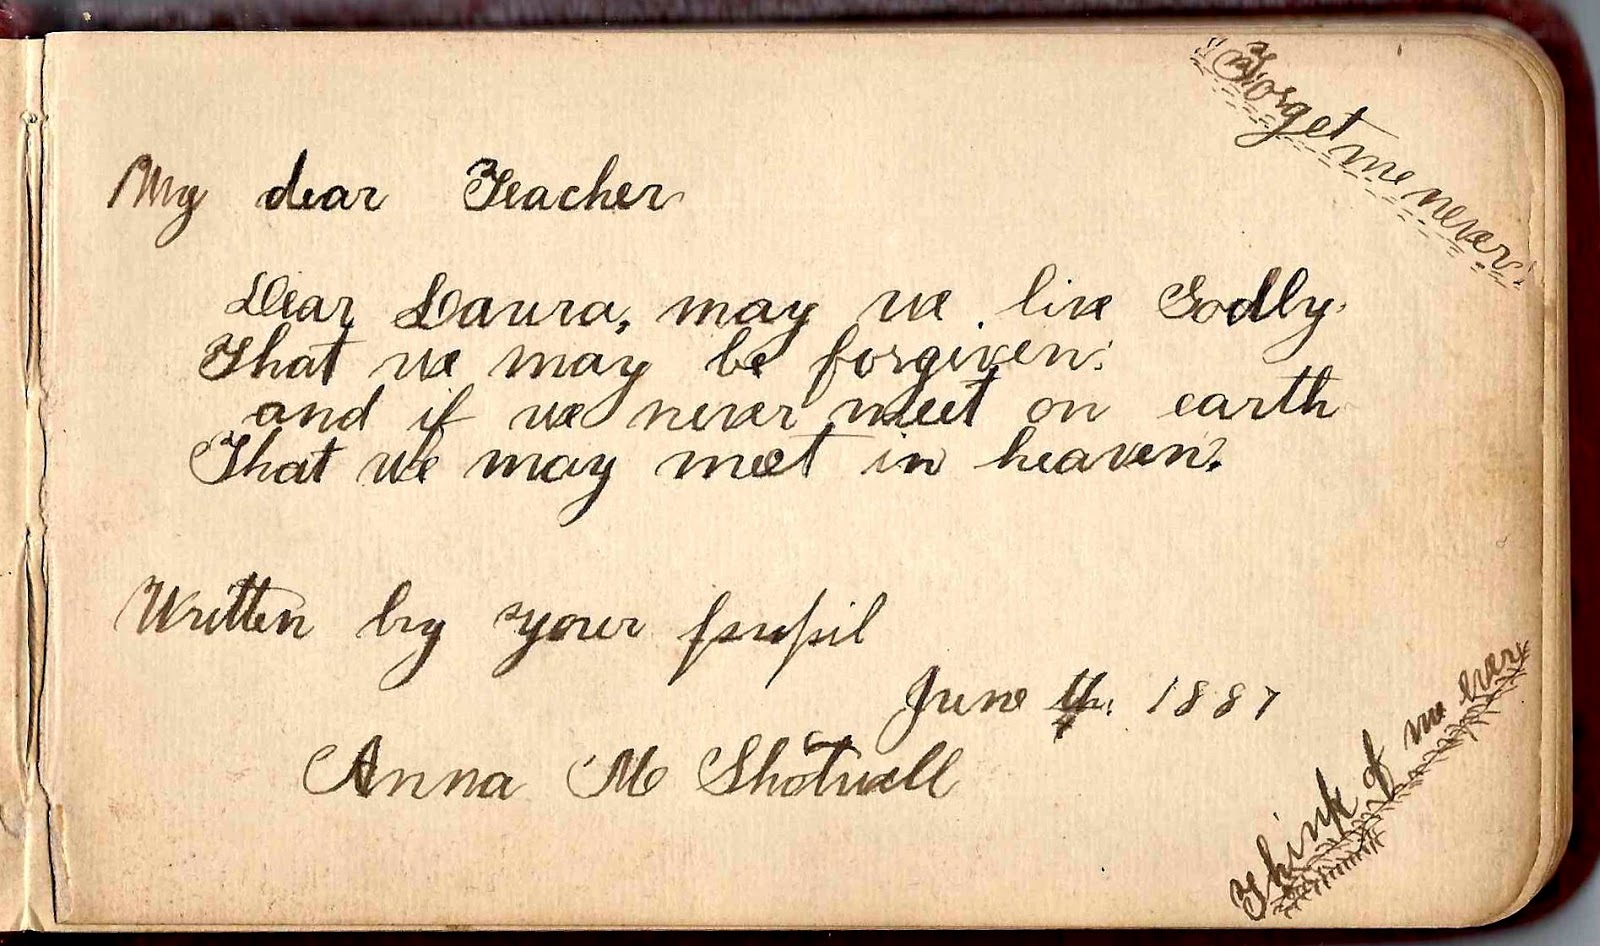 Forget me never
My dear Teacher
Dear Laura, may we live Godly.
That we may be forgiven.
and if we never meet on earth
That we may meet in heaven.
Written by your pupil
June 4. 1887
Anna M Shotwell
Think of me ever